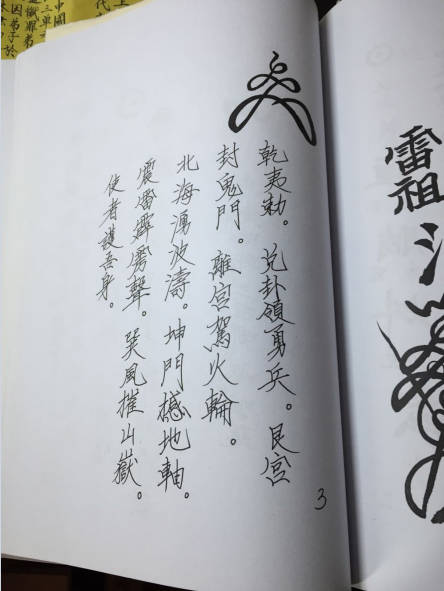 雷祖
乾夷勅。兌卦領勇兵。艮宮
封鬼門。離宮駕火輪。
北海湧波濤。坤門撼地軸。
震雷霹靂聲。巽風摧山嶽。
使者護吾身。
3
中國
因弟子於